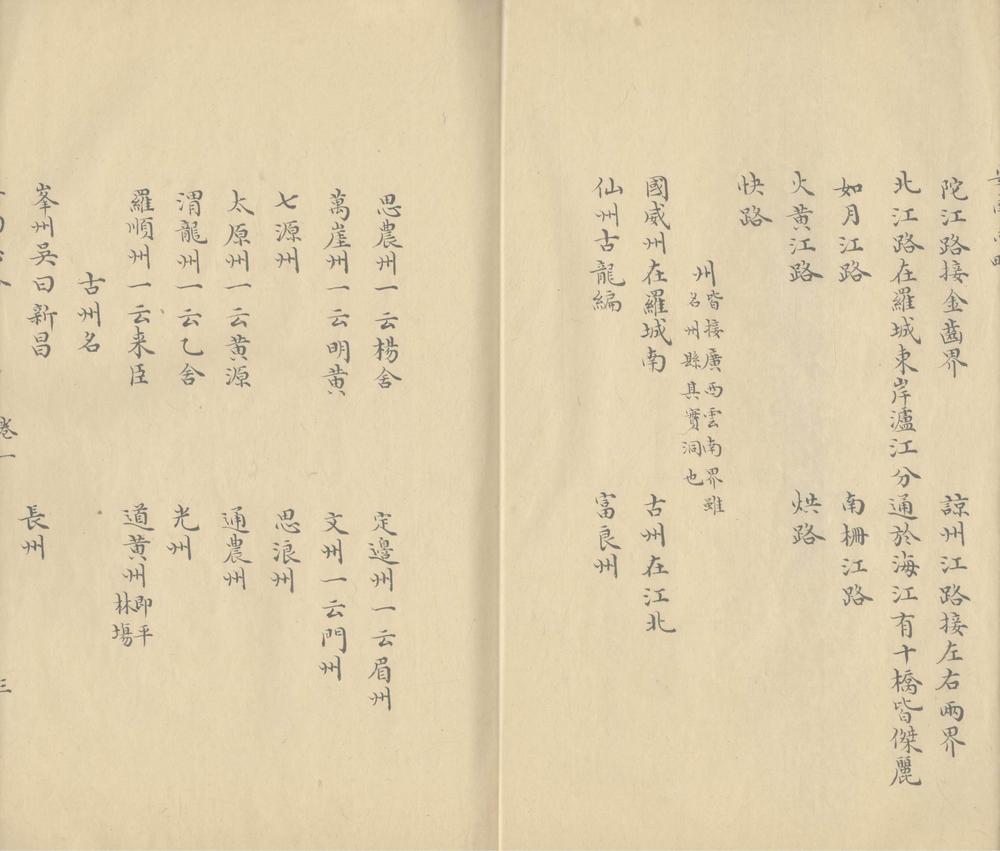 陀江路接金齒界 諒州江路接左右兩界
北江路在羅城東岸瀘江分通於海江有十橋皆傑麗
如月江路 南柵江路
火黄江路 烘路
快路
州皆接廣西雲南界雖
名州縣其實洞也
國威州在羅城南 古州在江北
仙州古龍編 富良州
思農州一云楊舍 定邊州一云眉州
萬崖州一云明黄 文州一云門州
七源州 思浪州
太原州一云黄源 通農州
渭龍州一云乙舍 光州
羅順州一云来臣 道黄州即平
林塲
古州名
峯州吳曰新昌 長州
卷一 三